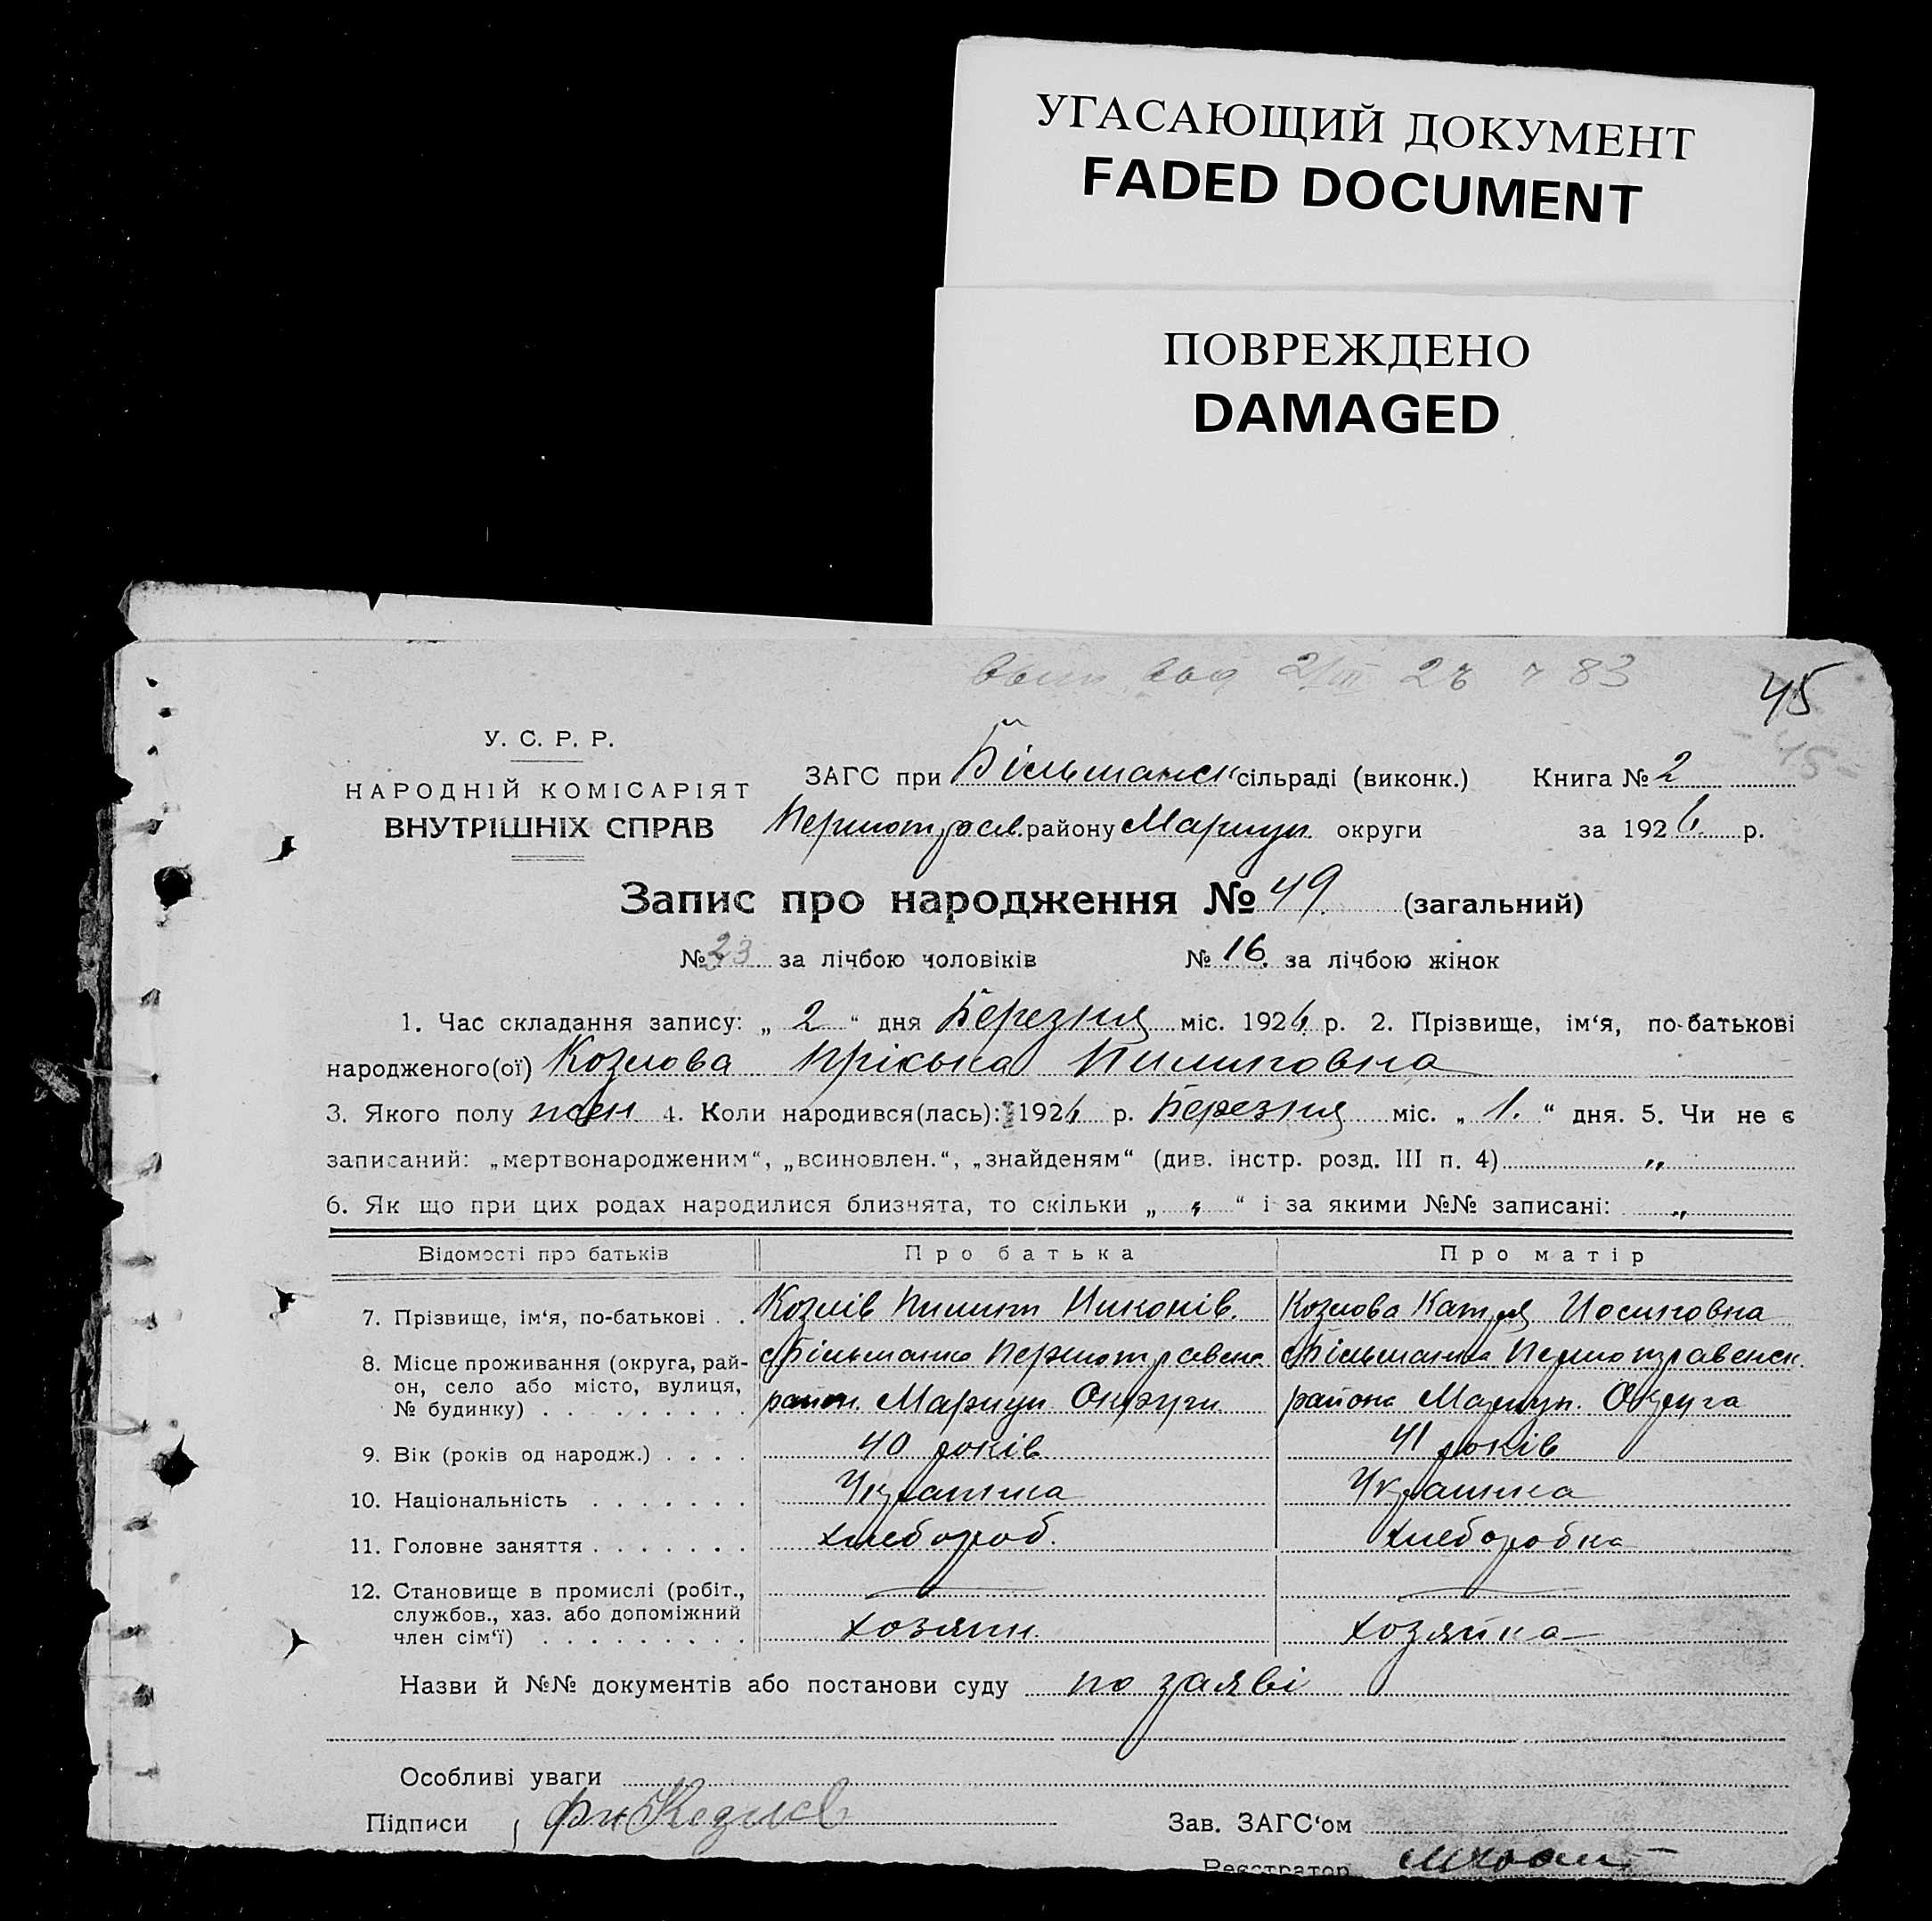 УГАСАЮЩИЙ ДОКУМЕНТ
FADED DOCUMENT
ПОВРЕЖДЕНО
DAMAGED
2/III 26 83
45
45
У. С. Р. Р.
НАРОДНІЙ КОМІСАРІЯТ
ВНУТРІШНІХ СПРАВ
ЗАГС при Більшанск сільраді (виконк.) Книга № 2
Першотрав. району Мариуп. округи за 1926 р.
Запис про народження № 49. (загальний)
№ 23 за лічбою чоловіків № 16. за лічбою жінок
1. Час складання запису: „ 2 “ дня Березня міс. 1926 р. 2. Прізвище, ім‘я, по-батькові
народженого(ої) Козлова Пріська Пилиповна
3. Якого полу жен 4. Коли народився(лась): 1926 р. Березня міс. „ 1. “ дня. 5. Чи не є
записаний: „мертвонародженим“, „всиновлен.“, „знайденям“ (див. інстр. розд. III п. 4) „
6. Як що при цих родах народилися близнята, то скільки „ „ “ і за якими №№ записані: „
Відомості про батьків Про батька Про матір
7. Прізвище, ім‘я, по-батькові . . Козлів Пилип Никонів. Козлова Катря Иосиповна
8. Місце проживання (округа, рай- с Більшанка Першотравенс с Більшанка Першотравенск.
он, село або місто, вулиця,
№ будинку) . . . . . . . . . район. Мариуп. Округи района Мариуп. Округа
9. Вік (років од народж.) . . . . 40 років 41 років
10. Національність . . . . . . . Україника Україника
11. Головне заняття . . . . . . . хлебороб. хлеборобка
12. Становище в промислі (робіт.,
службов., хаз. або допоміжний
член сім‘ї) . . . . . . . . . хозяин. хозяйка
Назви й №№ документів або постанови суду по заяві
Особливі уваги
Підписи Козлов
Зав. ЗАГС‘ом
Реєстратор